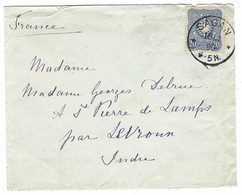 France
SAGAN
4-5N.
20 20
Madame
Madame Georges Debrue
A St Pierre de Lamps
par Levroux
Indre